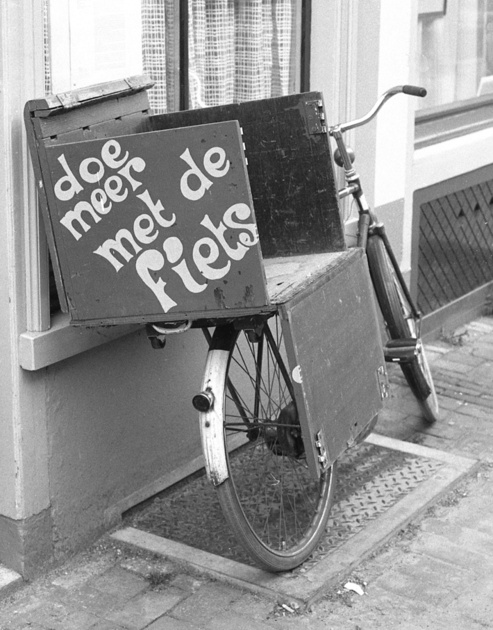 doe
meer
met de
fiets